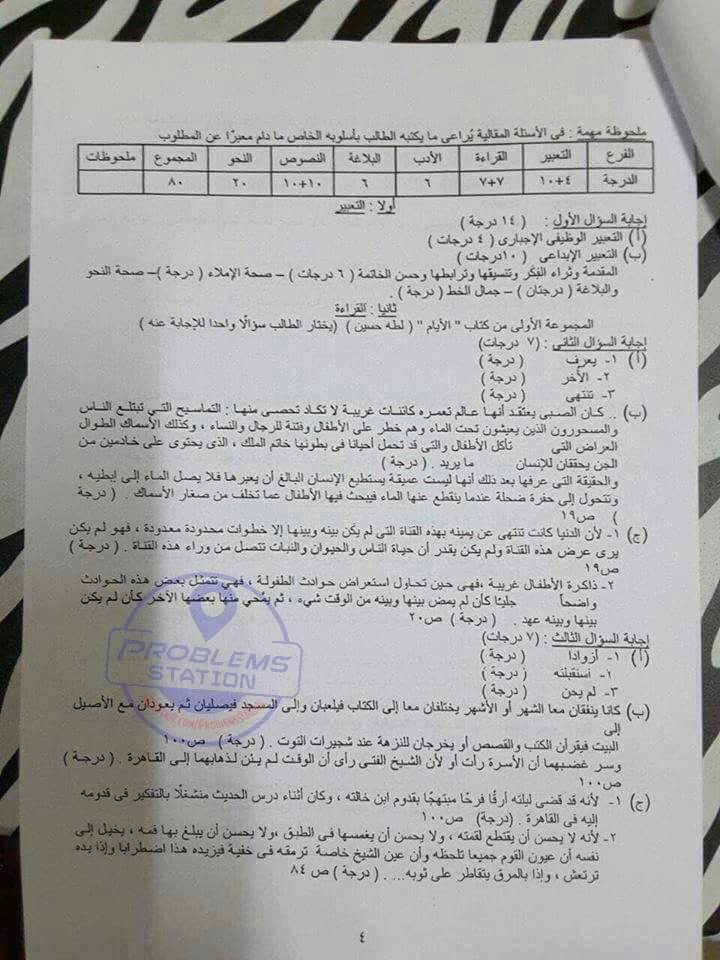 ملحوظة مهمة : فى الأسئلة المقالية يُراعى ما يكتبه الطالب بأسلوبه الخاص ما دام معبرًا عن المطلوب
الفرع التعبير القراءة الأدب البلاغة النصوص النحو المجموع ملحوظات
الدرجة ٤+١٠ ٧+٧ ٦ ٦ ١٠+١٠ ٢٠ ٨٠
أولا : التعبير
إجابة السؤال الأول : ( ١٤ درجة )
(أ) التعبير الوظيفى الإجبارى ( ٤ درجات )
(ب) التعبير الإبداعى ( ١٠درجات )
المقدمة وثراء الفِكر وتنسيقها وترابطها وحسن الخاتمة ( ٦ درجات ) – صحة الإملاء ( درجة )– صحة النحو
والبلاغة ( درجتان ) – جمال الخط ( درجة ) .
ثانيا : القراءة
المجموعة الأولى من كتاب " الأيام " ( لطه حسين ) (يختار الطالب سؤالًا واحدا للإجابة عنه )
إجابة السؤال الثانى : (٧ درجات)
(أ) ١- يعرف ( درجة )
٢- الأُخر ( درجة )
٣- تنتهى ( درجة )
(ب) .. كان الصبى يعتقد أنها عالم تعمره كائنات غريبة لا تكاد تحصى منها : التماسيح التى تبتلع الناس
والمسحورون الذين يعيشون تحت الماء وهم خطر على الأطفال وفتنة للرجال والنساء ، وكذلك الأسماك الطوال
العراض التى تأكل الأطفال والتى قد تحمل أحيانا فى بطونها خاتم الملك ، الذى يحتوى على خادمين من
الجن يحققان للإنسان ما يريد . ( درجة )
والحقيقة التى عرفها بعد ذلك أنها ليست عميقة يستطيع الإنسان البالغ أن يعبرها فلا يصل الماء إلى إبطيه ،
وتتحول إلى حفرة ضحلة عندما ينقطع عنها الماء فيبحث فيها الأطفال عما تخلف من صغار الأسماك . ( درجة
) ص١٩
(ج) ١- لأن الدنيا كانت تنتهى عن يمينه بهذه القناة التى لم يكن بينه وبينها إلا خطوات محدودة معدودة ، فهو لم يكن
يرى عرض هذه القناة ولم يكن يقدر أن حياة الناس والحيوان والنبات تتصل من وراء هذه القناة . ( درجة )
ص١٩
٢- ذاكرة الأطفال غريبة ،فهى حين تحاول استعراض حوادث الطفولة ، فهى تتمثل بعض هذه الحوادث
واضحاً جليًا كأن لم يمض بينها وبينه من الوقت شيء ، ثم يمَّحي منها بعضها الآخر كأن لم يكن
بينها وبينه عهد . ( درجة ) ص٢٠
إجابة السؤال الثالث : (٧ درجات)
(أ) ١- أزوادا ( درجة )
٢- استقبلته ( درجة )
٣- لم يحن ( درجة )
(ب) كانا ينفقان معا الشهر أو الأشهر يختلفان معا إلى الكتاب فيلعبان وإلى المسجد فيصليان ثم يعودان مع الأصيل
إلى
البيت فيقرآن الكتب والقصص أو يخرجان للنزهة عند شجيرات التوت . ( درجة ) ص١٠٠
وسر غضبهما أن الأسرة رأت أو لأن الشيخ الفتى رأى أن الوقت لم يئن لذهابهما إلى القاهرة . ( درجة )
ص١٠٠
(ج) ١- لأنه قد قضى ليلته أرقًا فرحًا مبتهجًا بقدوم ابن خالته ، وكان أثناء درس الحديث منشغلًا بالتفكير فى قدومه
إليه فى القاهرة . (درجة) ص١٠٠
٢- لأنه لا يحسن أن يقتطع لقمته ، ولا يحسن أن يغمسها فى الطبق ،ولا يحسن أن يبلغ بها فمه ، يخيل إلى
نفسه أن عيون القوم جميعا تلحظه وأن عين الشيخ خاصة ترمقه فى خفية فيزيده هذا اضطرابا وإذا يده
ترتعش ، وإذا بالمرق يتقاطر على ثوبه.... ( درجة ) ص ٨٤
PROBLEMS
STATION
٤